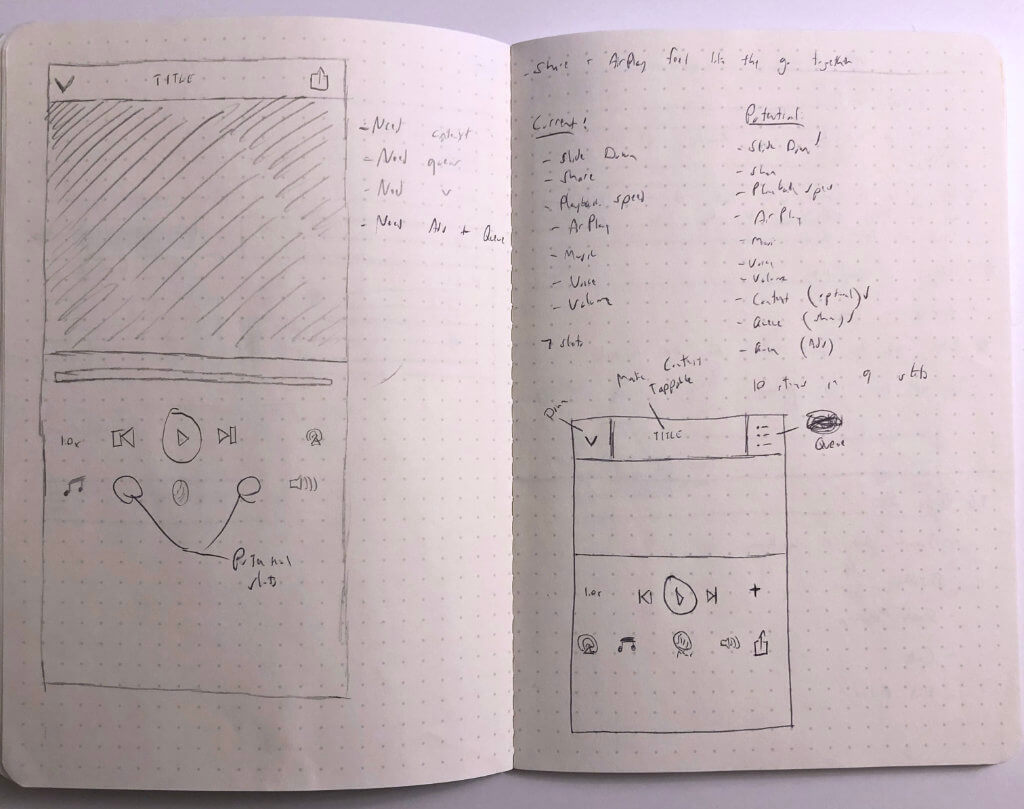 TITLE
- Need context
- Need queue
- Need
- Need Add to Queue
1.0x
Potential
slots
- Share + AirPlay feel like they go together
Current:
- Slide Down
- Share
- Playback speed
- AirPlay
- Music
- Voice
- Volume
7 slots
Potential:
- Slide Down
- Share
- Playback speed
- AirPlay
- Music
- Voice
- Volume
- Context (optional)
- Queue (show)
- Queue (Add)
10 items in 9 slots
Make Context
Tappable
Down
TITLE
Queue
1.0x
+